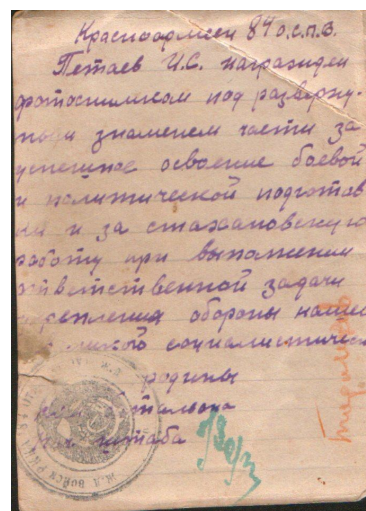 Красноармеец 84 о.с.п.з.
Петаев И.С. награжден
фотоснимком под разверну-
тым знаменем части за
успешное освоение боевой
и политической подготов
ки и за стахановскую
работу при выполнении
ответственной задачи
укрепления обороны нашей
социалистическ
родины
штаба